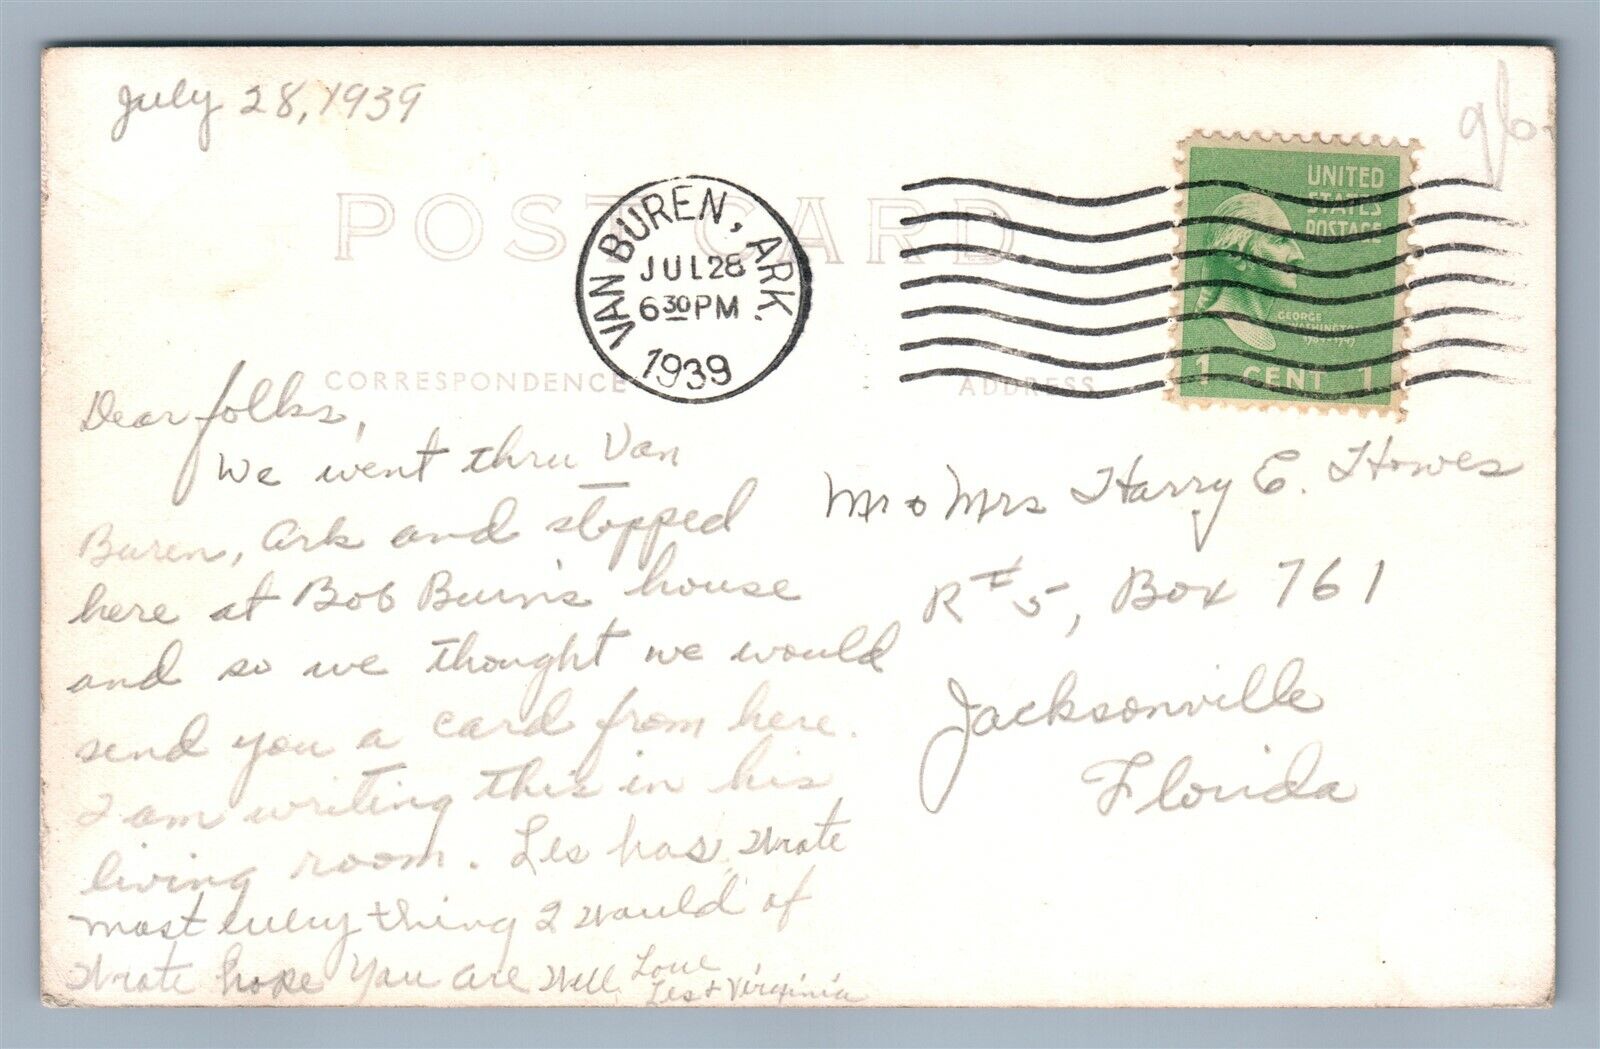 July 28, 1939
96-
POST CARD
VAN BUREN, ARK.
JUL 28
6 30 PM
1939
UNITED
STATES
POSTAGE
GEORGE
WASHINGTON
1 CENT 1
CORRESPONDENCE
ADDRESS
Dear folks,
We went thru Van
Buren, Ark and stopped
here at Bob Burn's house
and so we thought we would
send you a card from here.
I am writing this in his
living room. Les has wrote
most every thing I would of
wrote hope you are well Love
Les + Virginia
Mr & Mrs Harry E. Howes
R # 5, Box 761
Jacksonville
Florida